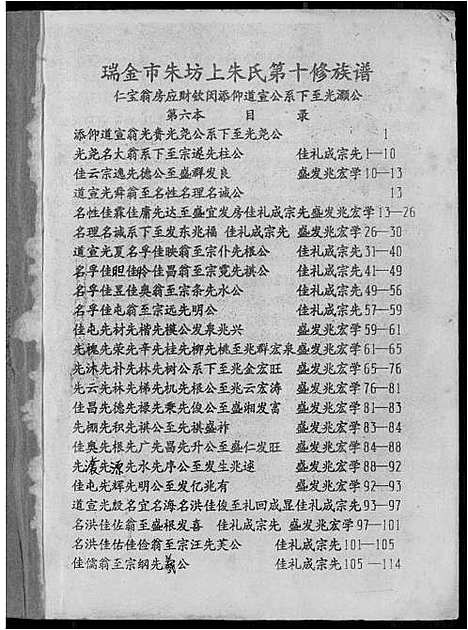 瑞金市朱坊上朱氏第十修族谱
仁宝翁房应财钦闵添仰道宣公系下至光灏公
第六本 目 录
添仰道宣翁光贵光尧公系下至光尧公 1
光尧名大翁系下至宗遂先柱公 佳礼成宗先1—10
佳云宗逸先德公至盛群发良 盛发兆宏学10—13
道宣光舜翁至名性名理名诚公 13
名性佳霖佳庸先达至盛宜发房佳礼成宗先盛发兆宏学13—26
名理名诚系下至发东兆福 佳礼成宗先 盛发兆宏学26—30
道宣光夏名孚佳映翁至宗仆先根公 佳礼成宗先31—40
名孚佳旺佳昤佳昌翁至宗霓先祺公 佳礼成宗先41—49
名孚佳昱佳奥翁至宗条先水公 佳礼成宗先49—56
名孚佳屯翁至宗远先明公 佳礼成宗先57—59
佳屯先材先楷先模公发泉兆兴 盛发兆宏学59—61
先槐先荣先辛先桂先柳先桃至兆群宏泉盛发兆宏学61—65
先沐先朴先林先树公系下至兆金宏旺 盛发兆宏学65—76
先云先林先梯先机先根公至兆云宏涛 盛发兆宏学76—81
佳昌先德先禄先秉先俊公至盛湘发富 盛发兆宏学81—83
先棚先积先祺公至先祺盛祚 盛发兆宏学83—84
佳奥先根先广先昌先升公至盛仁发旺 盛发兆宏学84—88
先滚先源先水先序公至发生兆逑 盛发兆宏学88—92
佳屯先辉先明公至发亿兆有 盛发兆宏学92—93
道宣光殷名宜名海名洪佳俊至礼回成显佳礼成宗先93—97
名洪佳佐翁至盛根发喜 佳礼成宗先 盛发兆宏学97—101
名洪佳佑佳俭翁至宗汪先芙公 佳礼成宗先101—105
佳儒翁至宗纲先羲公 佳礼成宗先105—114